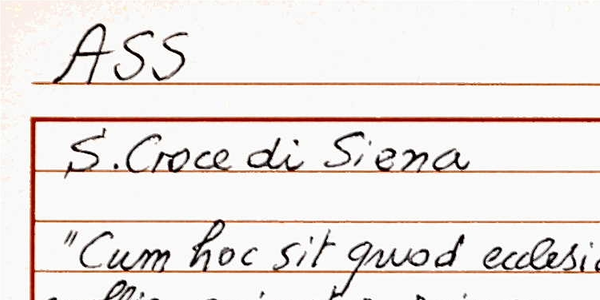 ASS
S. Croce di Siena
"Cum hoc sit quod